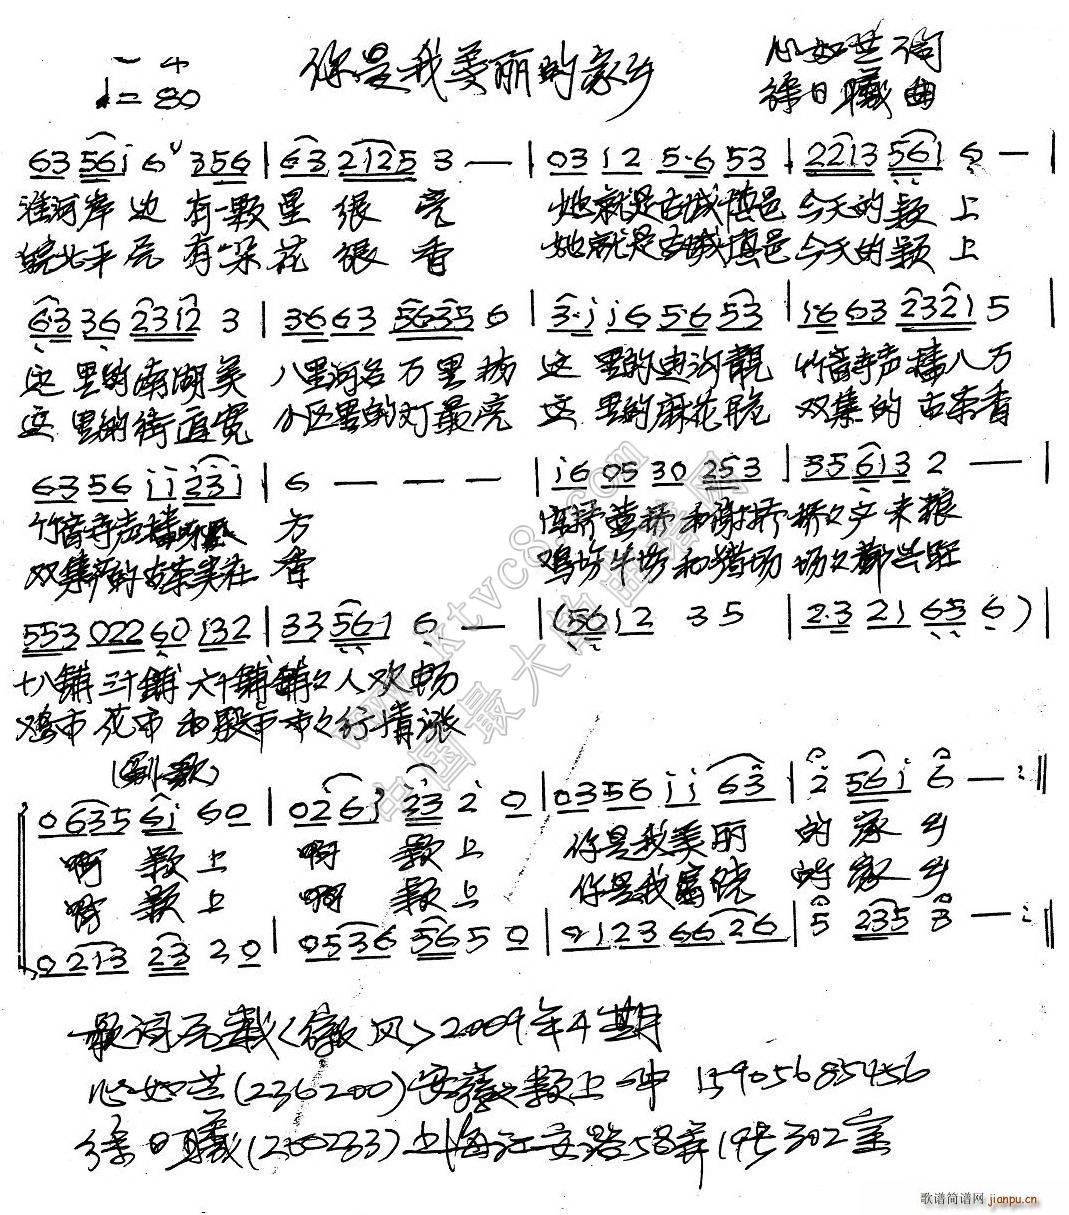 你是我美丽的家乡
心如芷词
♩=80
徐日曦曲
63 56i 6 356 | 63 2125 3 — | 03 12 5·6 53 | 2213 561 6 — |
淮河岸边 有一颗星 很亮 她就是古城慎邑 今天的颖上
皖北平原 有一朵花 很香 她就是古城慎邑 今天的颖上
6·3 36 2312 3 | 3·6 63 5635 6 | 3·i i6 5·6 53 | 1·6 63 2321 5 |
这里的南湖美 八里河名万里扬 这里的迪沟靓 竹音寺声播八方
这里的街道宽 小区里的灯最亮 这里的麻花脆 双集的古茶香
63 56 ii 23i | 6 — — — | i6 05 30 253 | 35 613 2 — |
竹音寺声播 方 和谢桥 桥々产米粮
双集的古茶实在香 鸡场牛场和猪场 场々都兴旺
553 022 60 132 | 33 561 6 — | (5612 3 5 | 2·3 21 65 6) |
十八铺三十铺六十铺铺々人欢畅
鸡市花市和 市市々行情涨
(副歌)
0635 6i 60 | 026i 23 2 0 | 0356 ii 63 | 2 56i 6 — :‖
啊 颖上 啊 颖上 你是我美丽 的家乡
啊 颖上 啊 颖上 你是我富饶 的家乡
0213 23 20 | 0536 56 5 0 | 0123 66 26 | 5 235 3 — :‖
歌词原载〈徽风〉2009年4期
心如芷(236200)安徽颖上一中 15905685456
徐日曦(200233)上海江安路58弄19号302室
www.ktvc8.com
中国最大的简谱网
歌谱简谱网 jianpu.cn